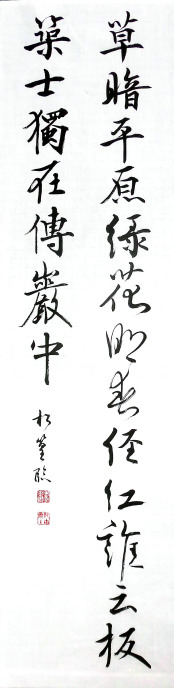 草暗平原綠花明春徑紅誰云板
築士獨在傅巖中
臨